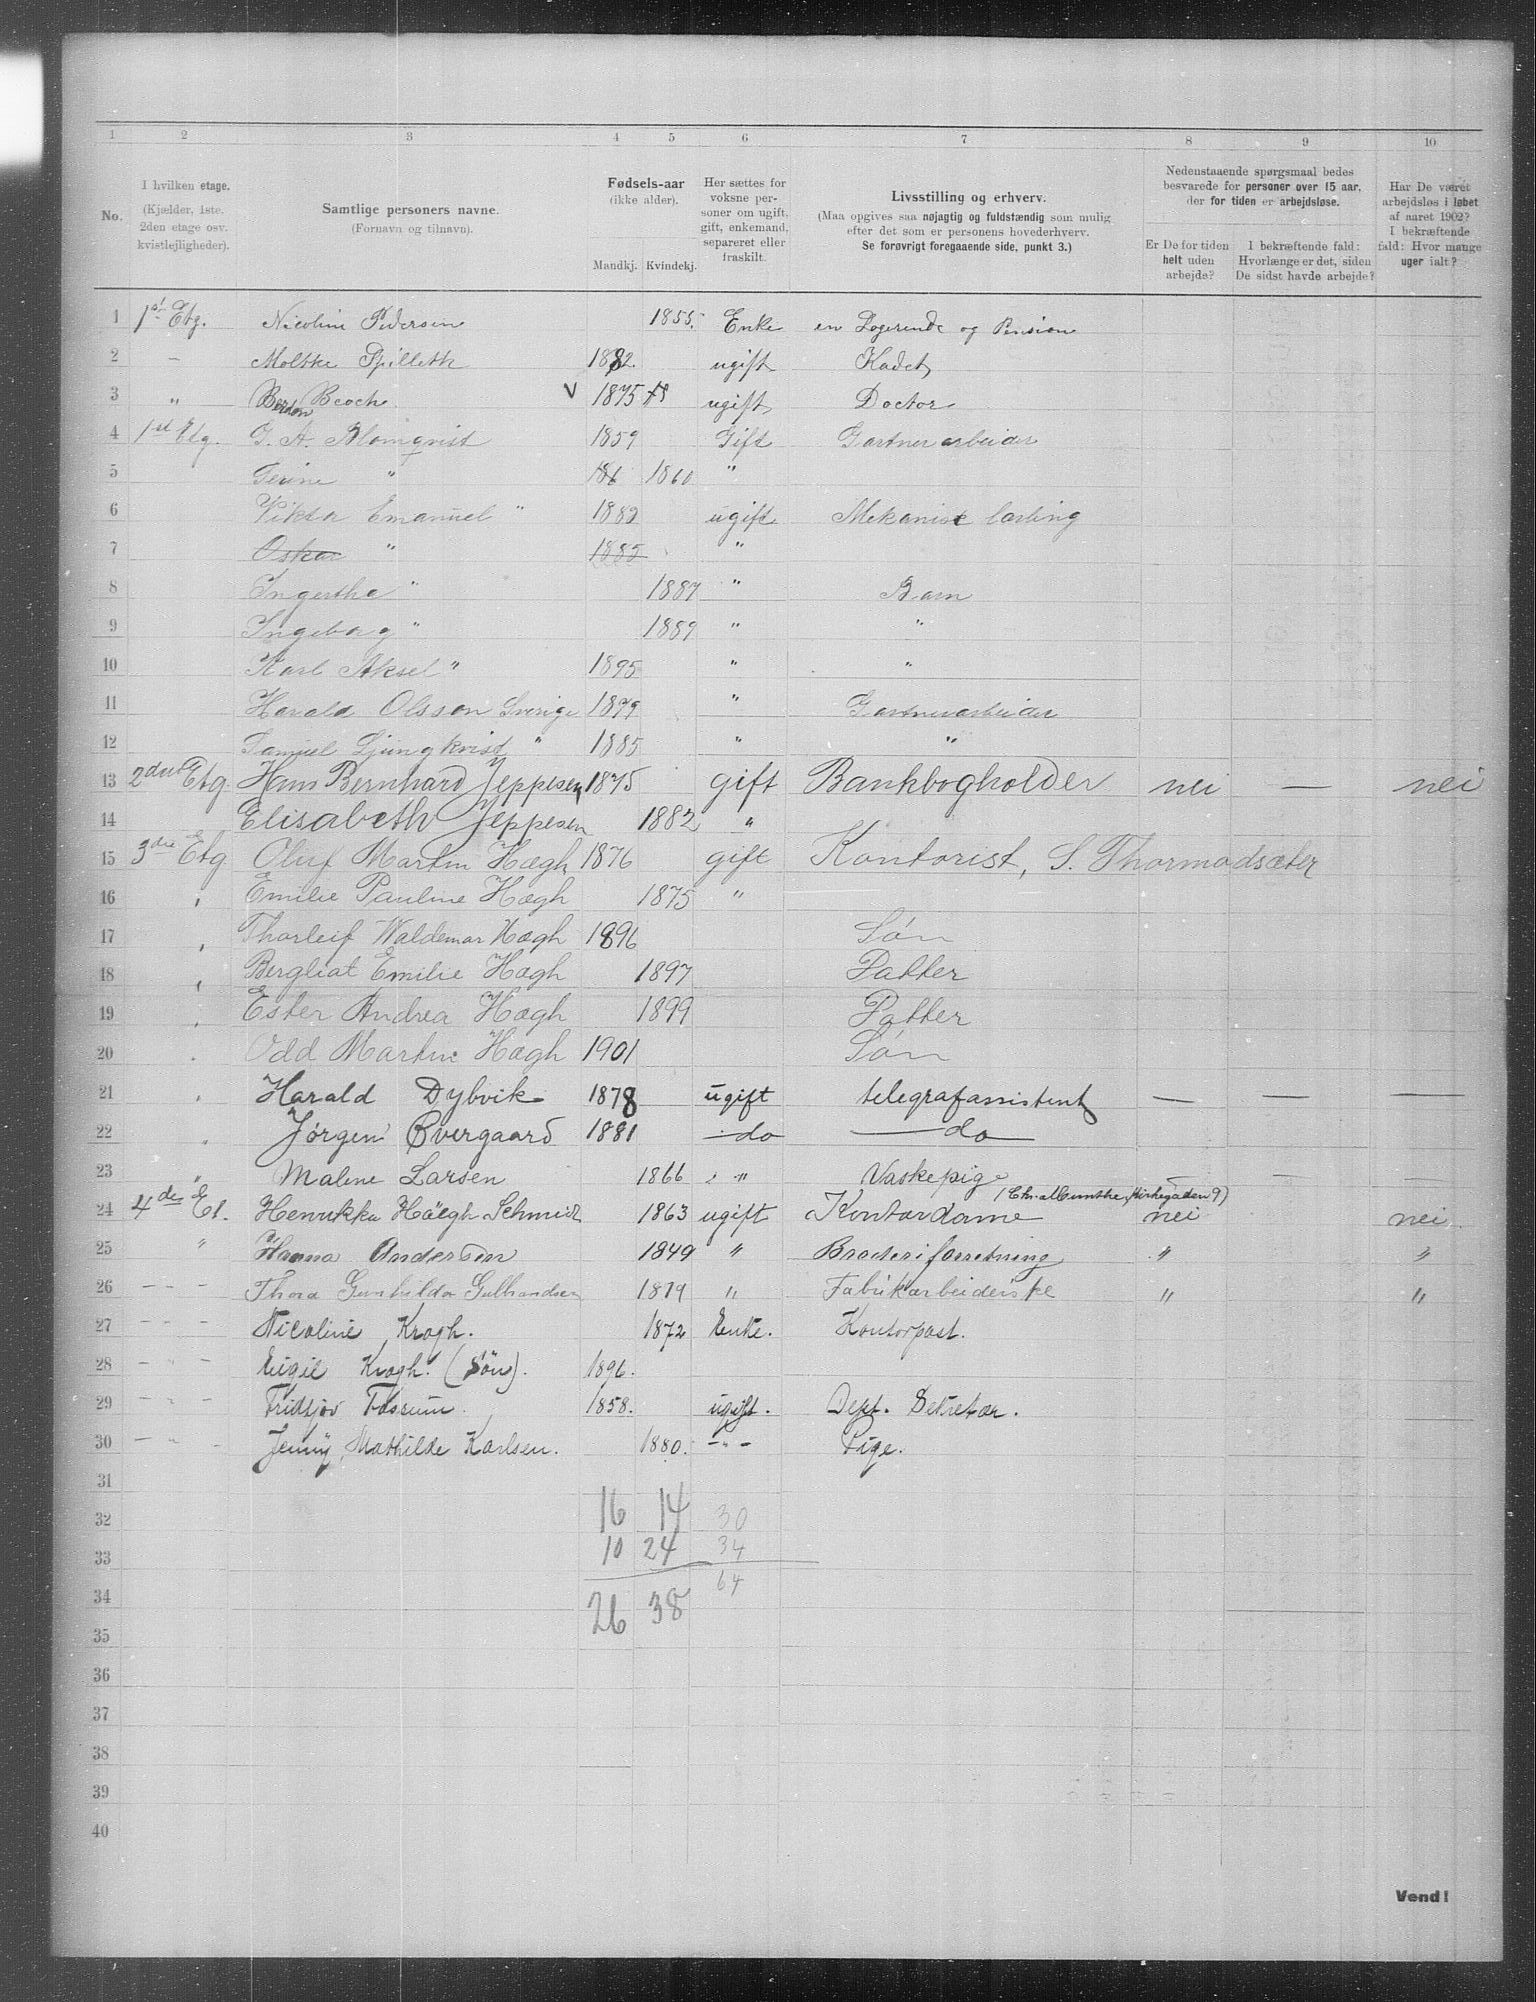 1 2 3 4 5 6 7 8 9 10
No.
I hvilken etage. (Kjælder, 1ste. 2den etage osv. kvistlejligheder).
Samtlige personers navne. (Fornavn og tilnavn).
Fødsels-aar (ikke alder).
Mandkj. Kvindekj.
Her sættes for voksne personer om ugift, gift, enkemand, separeret eller fraskilt.
Livsstilling og erhverv.
(Maa opgives saa nøjagtig og fuldstændig som mulig efter det som er personens hovederhverv.
Se forøvrigt foregaaende side, punkt 3.)
Nedenstaaende spørgsmaal bedes besvarede for personer over 15 aar, der for tiden er arbejdsløse.
Er De for tiden helt uden arbejde?
I bekræftende fald: Hvorlænge er det, siden De sidst havde arbejde?
Har De været arbejdsløs i løbet af aaret 1902? I bekræftende fald: Hvor mange uger ialt?
1 1st Etg. Nicoline Pedersen 1855. Enke en Logerende og Pension
2 – Moltke 1882. ugift Kadet
3 " Beoch V 1875 ugift Doctor
4 1st Etg. G. A. Blomqvist 1859 Gift Gartnerarbeider
5 " 1860 "
6 Viktor Emanuel " 1883 ugift Mekanisk lærling
7 Oskar " 1885 "
8 Ingertha " 1887 " Barn
9 Ingeborg " 1889 " "
10 Karl Aksel " 1895 " "
11 Harald Olsson Sverige 1879 " Gartnerarbeider
12 Samuel Ljungkvist " 1885 " "
13 2den Etg. Hans Bernhard Jeppesen 1875 gift Bankbogholder nei — nei
14 Elisabeth Jeppesen 1882 "
15 3die Etg. Oluf Martin Høegh 1876 gift Kontorist, S. Thormodsæter
16 " Emilie Pauline Høegh 1875 "
17 " Thorleif Waldemar Høegh 1896 Søn
18 " Bergliot Emilie Høegh 1897 Datter
19 " Ester Andrea Høegh 1899 Datter
20 " Odd Martin Høegh 1901 Søn
21 " Harald Dybvik 1878 ugift telegrafassistent — — —
22 " Jørgen Øvergaard 1881 – do — do —
23 " Malene Larsen 1866 " Vaskepige — —
24 4de Et. Henrikka Høegh Schmidt 1863 ugift Kontordame (Chr. al Munthe, Kirkegaden 9) nei nei
25 " Hanna Andersen 1849 " Broderiforretning " "
26 – – – Thora Gunhilda Gulbrandsen 1879 " Fabrikarbeiderske " "
27 – – – Nicoline Krogh. 1872 Enke. Kontorpost.
28 – " – Eigil Krogh. (Søn). 1896.
29 – " – Fridtjov Fosrum. 1858. ugift. Dept. Sekretær.
30 – " – Jenny Mathilde Karlsen. 1880. – " – Pige.
31
32 16 14 30
33 10 24 34
34 26 38 64
35
36
37
38
39
40
Vend!